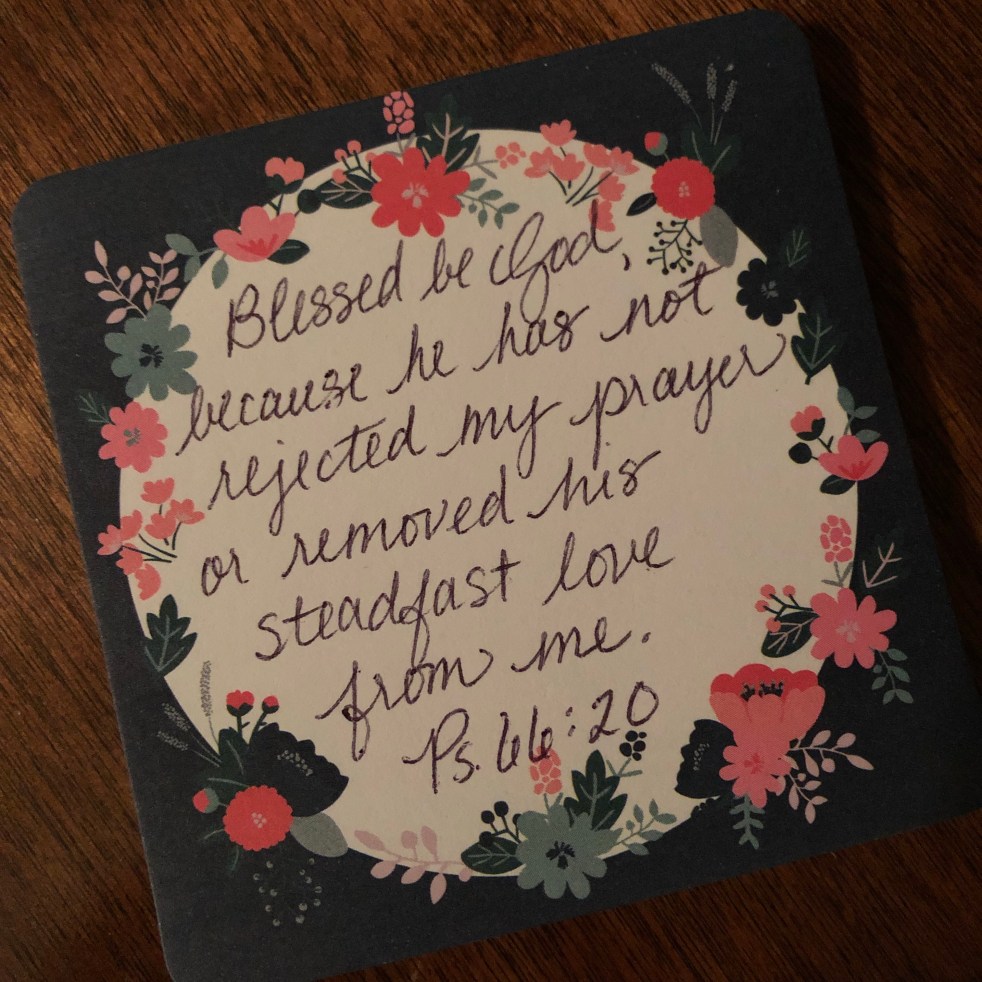 Blessed be God,
because he has not
rejected my prayer
or removed his
steadfast love
from me.
Ps. 66:20